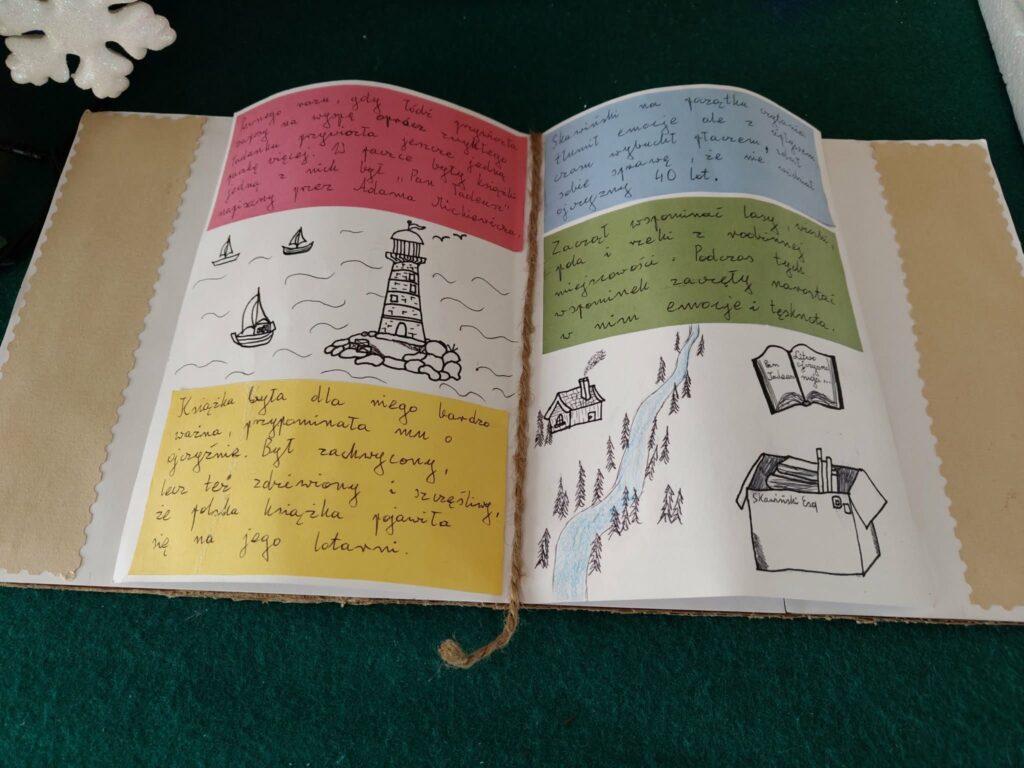 Pewnego razu, gdy łódź przywiozła
zapasy na wyspę oprócz zwykłego
ładunku przywiozła jeszcze jedną
paczkę więcej. W paczce były książki
jedną z nich był „Pan Tadeusz"
napisany przez Adama Mickiewicza.
Książka była dla niego bardzo
ważna, przypominała mu o
ojczyźnie. Był zachwycony,
lecz też zdziwiony i szczęśliwy,
że polska książka pojawiła
się na jego latarni.
Skawiński na początku czytania
tłumił emocje ale z upływem
czasu wybuchł płaczem, zdał
sobie sprawę, że nie widział
ojczyzny 40 lat.
Zaczął wspominać lasy, wioski,
pola i rzeki z rodzinnej
miejscowości. Podczas tych
wspominek zaczęły narastać
w nim emocje i tęsknota.
Pan
Tadeusz
Litwo
Ojczyzno
moja...
Skawiński Esq